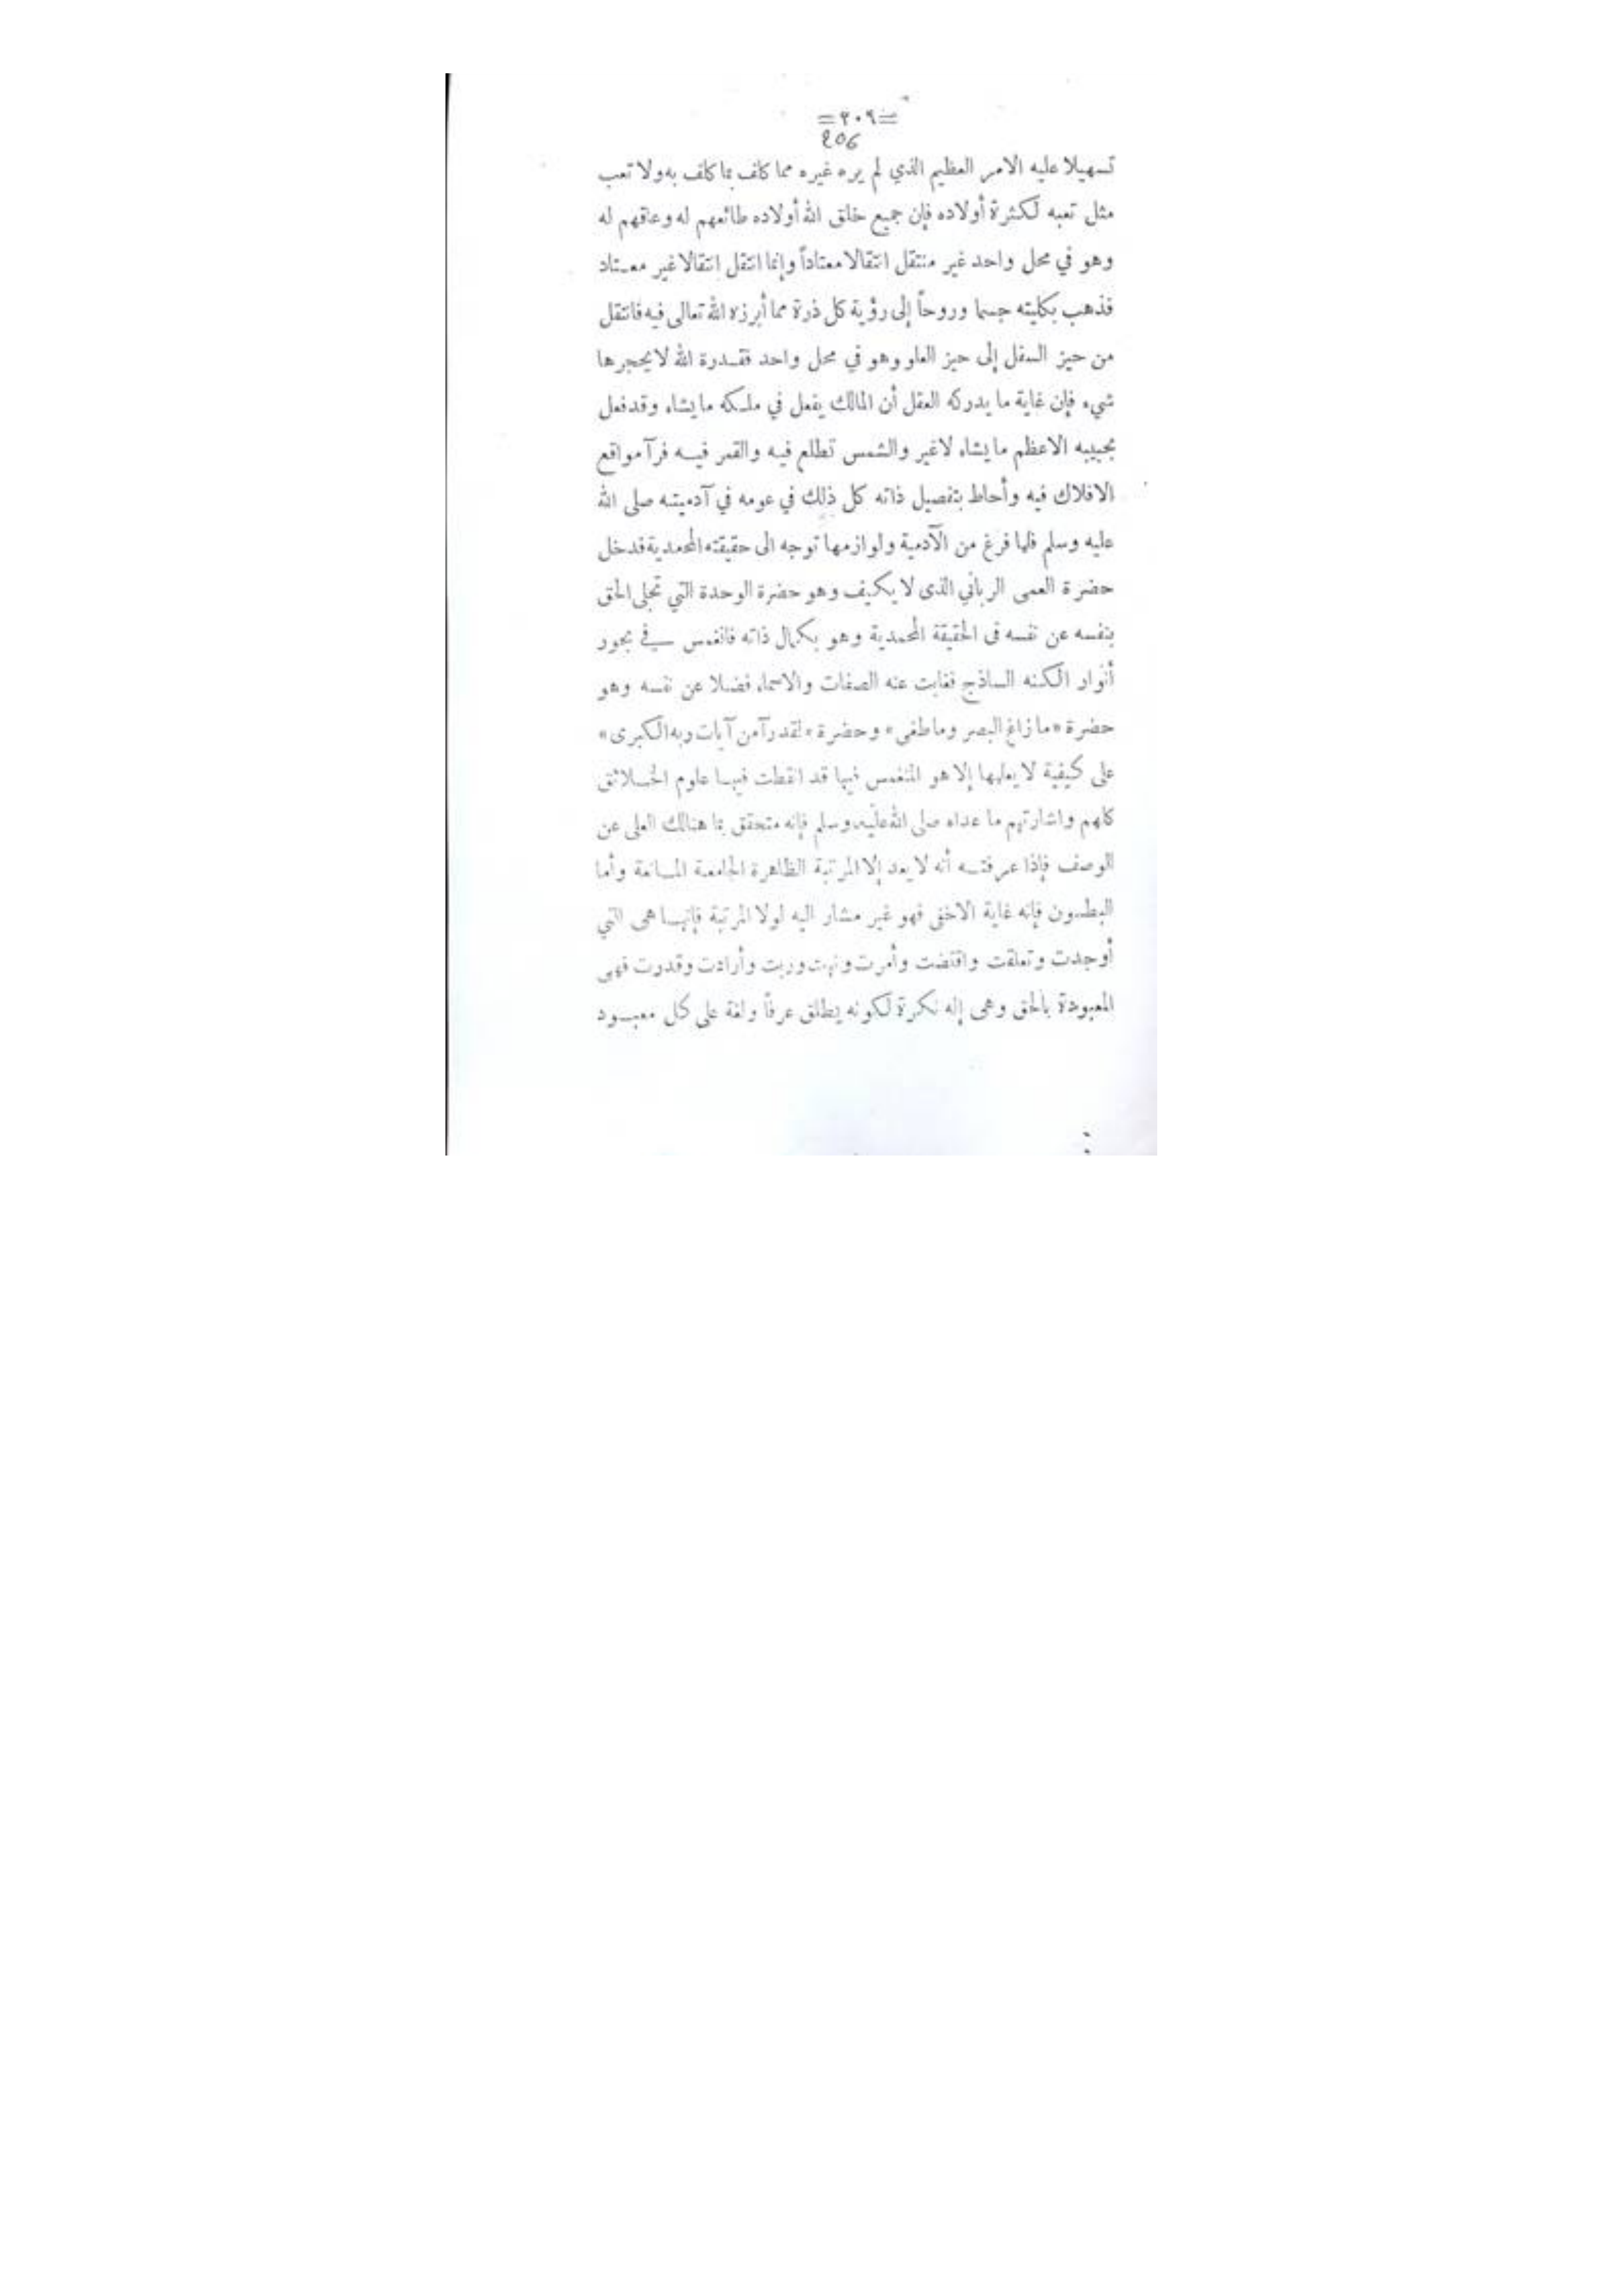 =٢٠٦=
206
تسهيلا عليه الامر العظيم الذي لم يره غيره مما كلف بما كلف به ولا تعب
مثل تعبه لكثرة أولاده فإن جميع خلق الله أولاده طائعهم له وعاقهم له
وهو في محل واحد غير منتقل انتقالا معتاداً وإنما انتقل انتقالا غير معتاد
فذهب بكليته جسما وروحاً إلى رؤية كل ذرة مما أبرزه الله تعالى فيه فانتقل
من حيز السفل إلى حيز العلو وهو في محل واحد فقدرة الله لا يحجرها
شيء فإن غاية ما يدركه العقل أن المالك يفعل في ملكه ما يشاء وقد فعل
بحبيبه الاعظم ما يشاء لا غير والشمس تطلع فيه والقمر فيه فرآ مواقع
الافلاك فيه وأحاط بتفصيل ذاته كل ذلك في عومه في آدميته صلى الله
عليه وسلم فلما فرغ من الآدمية ولوازمها توجه الى حقيقته المحمدية فدخل
حضرة العمى الرباني الذى لا يكيف وهو حضرة الوحدة التي تجلى الحق
بنفسه عن نفسه فى الحقيقة المحمدية وهو بكمال ذاته فانغمس في بحور
أنوار الكنه الساذج فغابت عنه الصفات والاسماء فضلا عن نفسه وهو
حضرة «ما زاغ البصر وماطغى» وحضرة «لقد رآ من آيات ربه الكبرى»
على كيفية لا يعلمها إلا هو المنغمس فيها قد انقطت فيها علوم الخلائق
كلهم واشارتهم ما عداه صلى الله عليه وسلم فإنه متحقق بما هنالك العلى عن
الوصف فإذا عرفته أنه لا يعد إلا المرتبة الظاهرة الجامعة المانعة وأما
البطون فإنه غاية الاخفى فهو غير مشار اليه لولا المرتبة فإنها هى التي
أوجدت وتعلقت واقتضت وأمرت ونهت وربت وأرادت وقدرت فهى
المعبودة بالحق وهى إله نكرة لكونه يطلق عرفاً ولغة على كل معبود